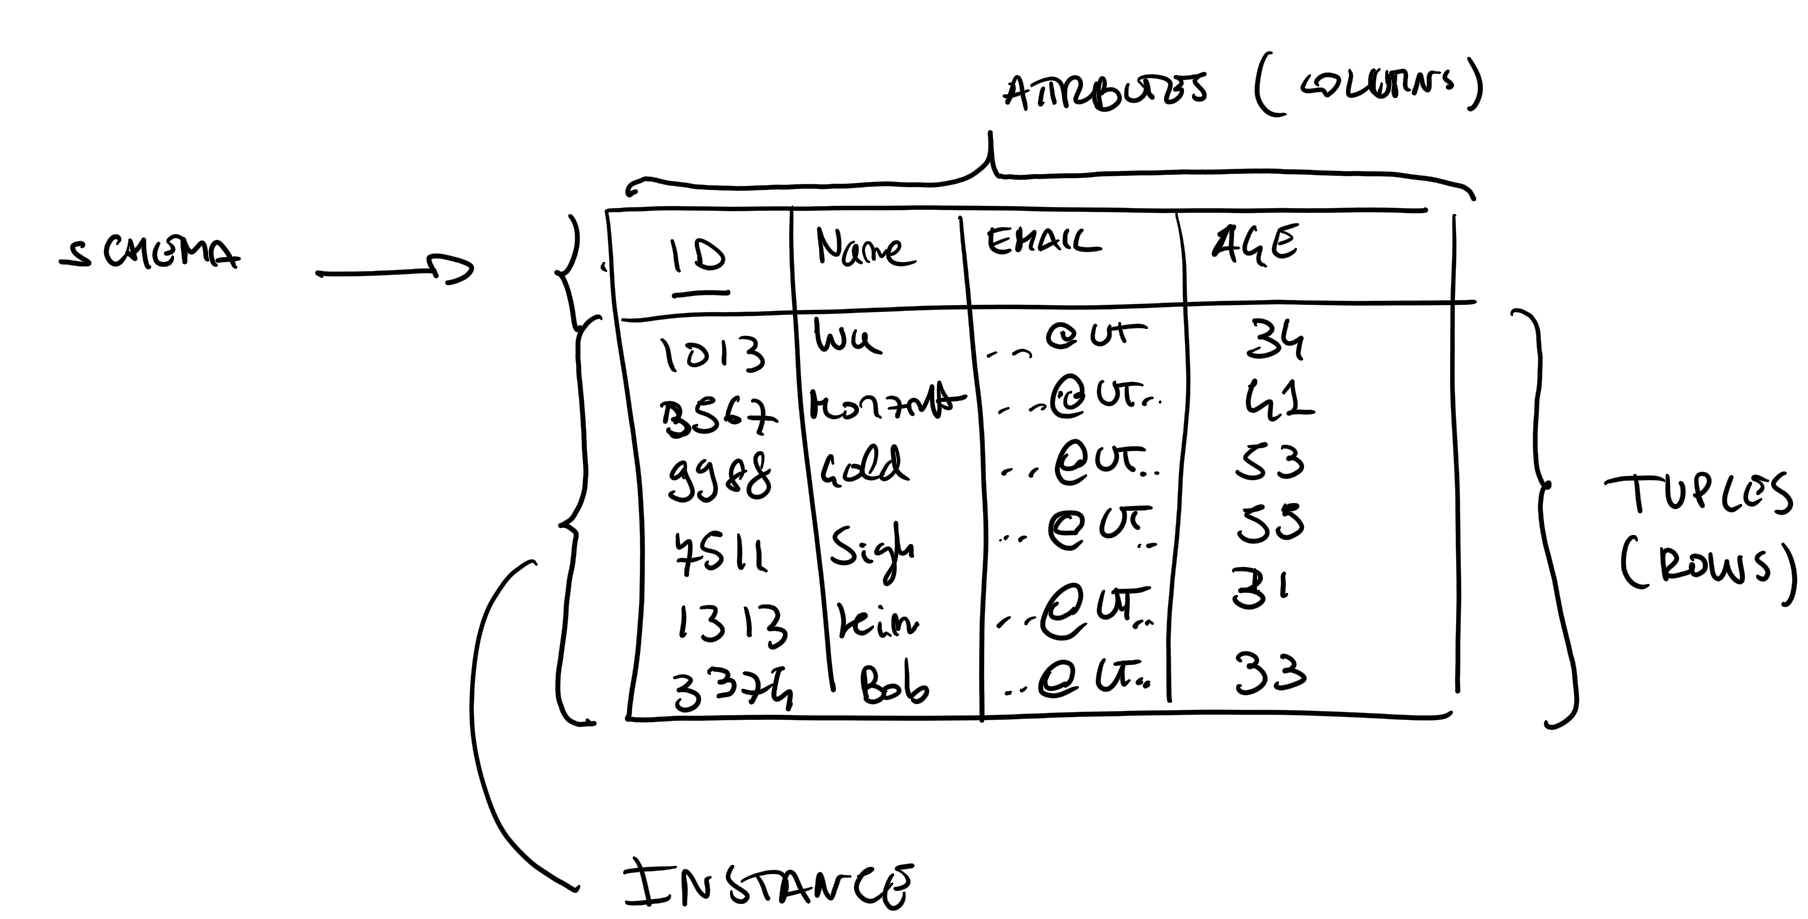 ATTRIBUTES (COLUMNS)
SCHEMA
ID Name EMAIL AGE
1013 Wu ...@UT 34
3567 @UT.. 41
9988 Gold ...@UT.. 53
7511 Sigh ...@UT.. 55
1313 ...@UT.. 31
3374 Bob ..@UT.. 33
TUPLES
(ROWS)
INSTANCE